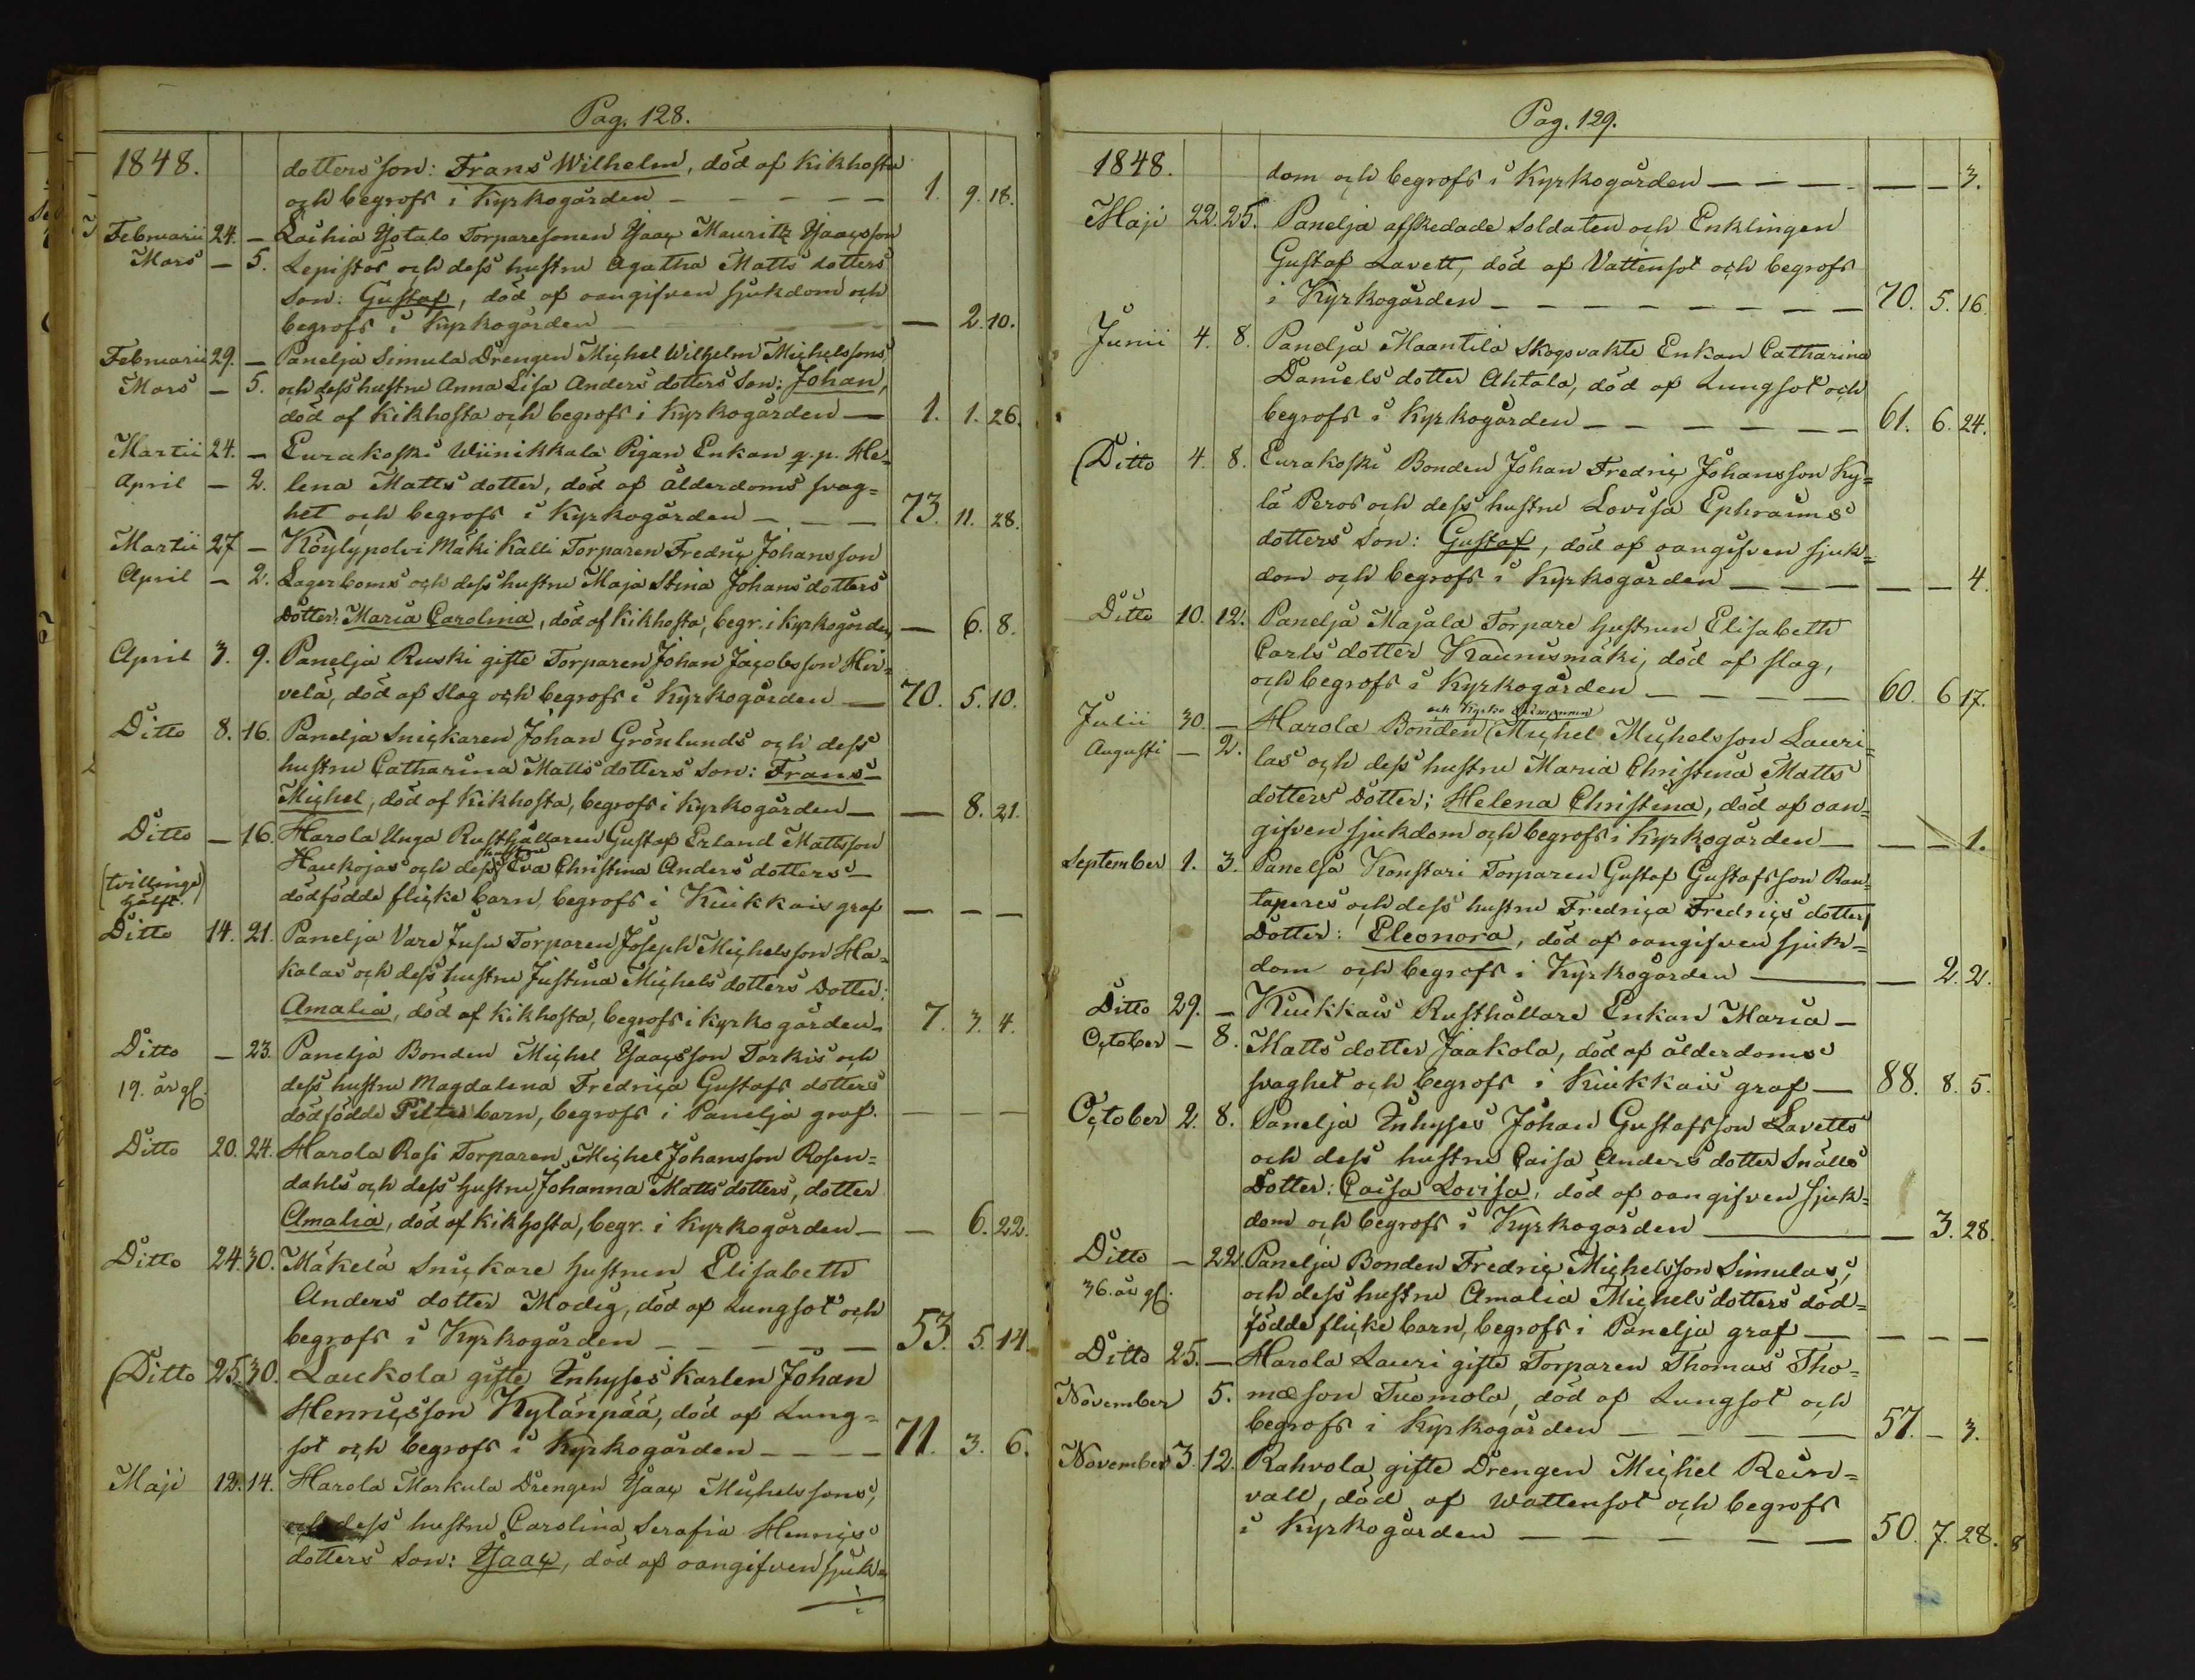 Pag. 128.
1848. dotters son: Frans Wilhelm, död af Kikhosta
och begrofs i Kyrkogården — — — — — 1. 9. 18.
Februarii 24. — Laihia Ylötalo Torparesonen Isaac Mauritz Isaacsson
Mars — 5. Lepistös och dess hustru Agatha Matts dotters
Son: Gustaf, död af oangifven sjukdom och
begrofs i Kyrkogården — — — — 2. 10.
Februarii 29. — Panelja Simula Drengen Michel Wilhelm Michelssons
Mars — 5. och dess hustru Anna Lisa Anders dotters Son: Johan,
död af Kikhosta och begrofs i Kyrkogården — 1. 1. 26.
Martii 24. — Eurakoski Wiinikkala Pigan Enkan q.p. He=
April — 2. lena Matts dotter, död af ålderdoms svag=
het och begrofs i Kyrkogården — — — 73. 11. 28.
Martii 27 — Köylypolvi Mäki Kalli Torparen Fredric Johansson
April — 2. Lagerboms och dess hustru Maja Stina Johans dotters
Dotter: Maria Carolina, död af Kikhosta, begr. i Kyrkogården — 6. 8.
April 3. 9. Panelja Ruski gifte Torparen Johan Jacobsson Hir=
velä, död af slag och begrofs i Kyrkogården — 70. 5. 10.
Ditto 8. 16. Panelja Snickaren Johan Grönlunds och dess
hustru Catharina Matts dotters Son: Frans
Michel, död af Kikhosta, begrofs i Kyrkogården — — 8. 21.
Ditto — 16. Harola Unga Rusthållaren Gustaf Erland Mattsson
Haukojas och dess hustru Eva Christina Anders dotters
(tvillings hälft.) dödfödde flicke barn, begrofs i Kiukkais graf — — —
Ditto 14. 21. Panelja Vare Jusu Torparen Joseph Michelsson Ha=
kalas och dess hustru Justina Michels dotters Dotter:
Amalia, död af Kikhosta, begrofs i Kyrkogården — 7. 3. 4.
Ditto — 23. Panelja Bonden Michel Isaacsson Torkis och
19. år gl. dess hustru Magdalena Fredrica Gustafs dotters
dödfödde Pilte barn, begrofs i Panelja graf. — — —
Ditto 20. 24. Harola Rosi Torparen Michel Johansson Rosen=
dahls och dess Hustru Johanna Matts dotters, dotter
Amalia, död af Kikhosta, begr. i Kyrkogården — — 6. 22.
Ditto 24. 30. Mäkelä Snickare Hustrun Elisabeth
Anders dotter Modig, död af Lungsot och
begrofs i Kyrkogården — — — — — 53. 5. 14.
Ditto 25. 30. Laukola gifte Inhyses Karlen Johan
Henricsson Kylänpää, död af Lung=
sot och begrofs i Kyrkogården — — — — 71. 3. 6.
Maji 12. 14. Harola Markula Drengen Isaac Michelssons,
och dess hustru Carolina Serafia Henrics
dotters Son: Isaac, död af oangifven sjuk=
Pag. 129.
1848. dom och begrofs i Kyrkogården — — — — — — 3.
Maji 22. 25. Panelja afskedade Soldaten och Enklingen
Gustaf Lavett, död af Vattensot och begrofs
i Kyrkogården — — — — — — — 70. 5. 16.
Junii 4. 8. Panelja Maantila Skogsvakte Enkan Catharina
Daniels dotter Ahtala, död af Lungsot och
begrofs i Kyrkogården — — — — — — 61. 6. 24.
Ditto 4. 8. Eurakoski Bonden Johan Fredric Johansson Ky=
lä Peros och dess hustru Lovisa Ephraims
dotters Son: Gustaf, död af oangifven sjuk=
dom och begrofs i Kyrkogården — — — — — 4.
Ditto 10. 12. Panelja Majala Torpare Hustrun Elisabeth
Carls dotter Kaunismäki, död af slag,
och begrofs i Kyrkogården — — — — 60. 6 17.
och Kyrko
Julii 30. — Harola Bonden Michel Michelsson Lauri=
Augusti — 2. las och dess hustru Maria Christina Matts
dotters Dotter; Helena Christina, död af oan=
gifven sjukdom och begrofs i Kyrkogården — — — 1.
September 1. 3. Panelja Konstari Torparen Gustaf Gustafsson Ran=
taperes och dess hustru Fredrica Fredrics dotters
Dotter: Eleonora, död af oangifven sjuk=
dom och begrofs i Kyrkogården — — 2. 2.
Ditto 29. — Kiukkais Rusthållare Enkan Maria
October — 8. Matts dotter Jaakola, död af ålderdoms
svaghet och begrofs i Kiukkais graf — 88. 8. 5.
October 2. 8. Panelja Inhyses Johan Gustafsson Lavetts
och dess hustru Caisa Anders dotter Snälls
Dotter: Caisa Lovisa, död af oangifven sjuk=
dom och begrofs i Kyrkogården — — 3. 28.
Ditto — 22. Panelja Bonden Fredric Michelsson Simulas,
36. år gl. och dess hustru Amalia Michels dotters död=
födde flicke barn, begrofs i Panelja graf — — — —
Ditto 25. — Harola Lauri gifte Torparen Thomas Tho=
November 5. mæson Tuomola, död af Lungsot och
begrofs i Kyrkogården — — — — 57. — 3.
November 3. 12. Rahvola gifte Drengen Michel Rein=
vall, död af Wattensot och begrofs
i Kyrkogården — — — — — — 50. 7. 28.